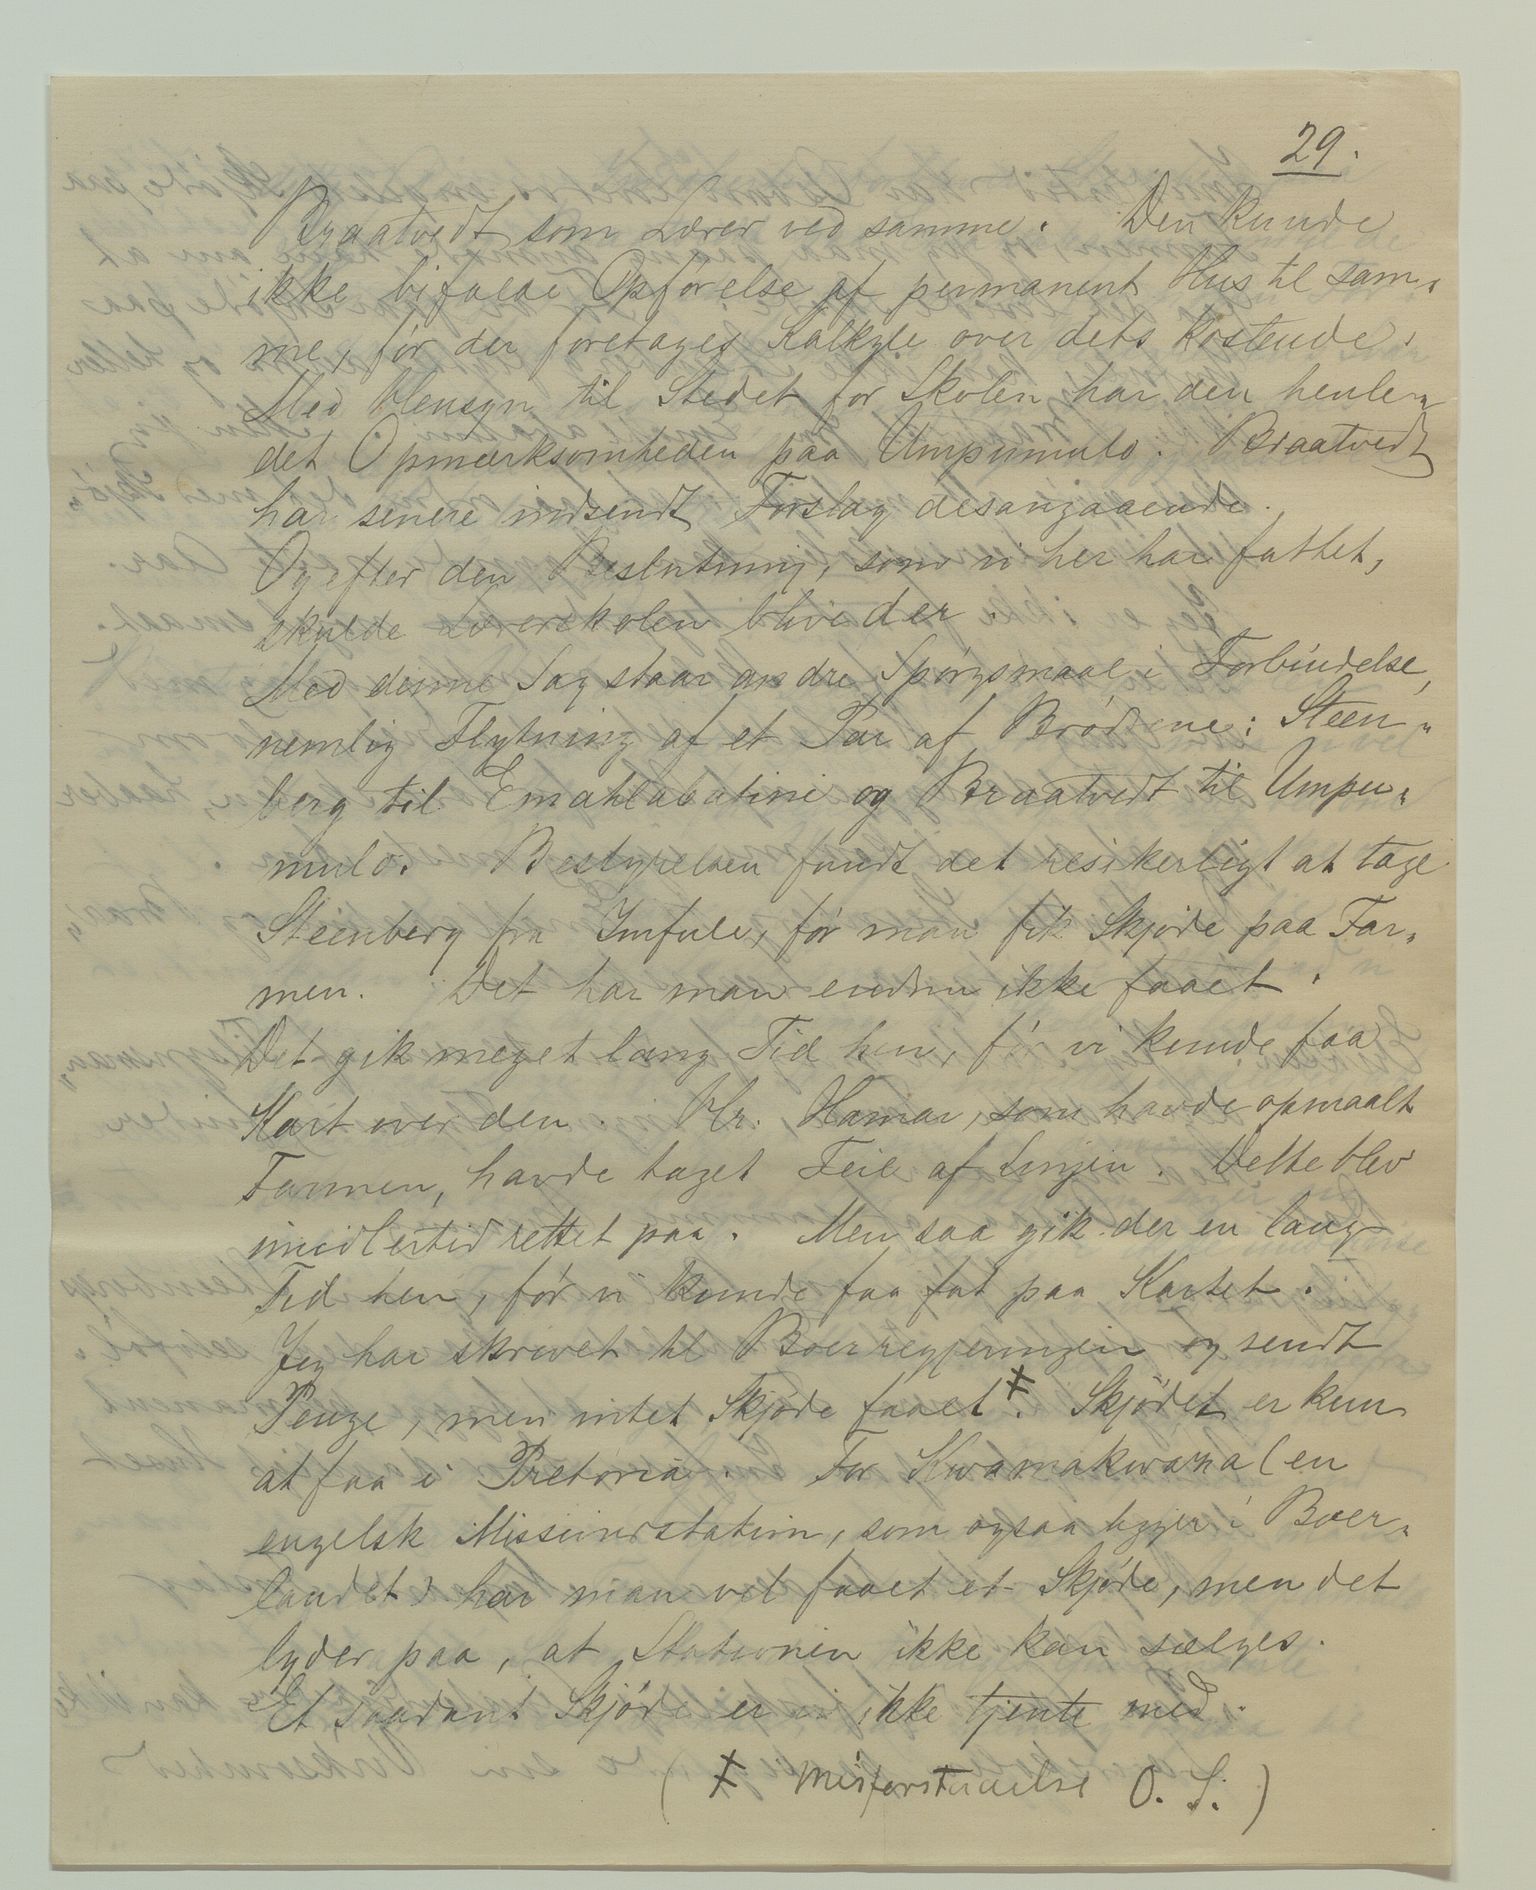 29.
Braatvedt som Lærer ved samme. Den kunde
ikke bifalde Opførelse af permanent Hus til sam„
me, før der foretages Kalkyle over dets Kostende.
Med Hensyn til Stedet for Skolen har den henle„
det Opmærksomheden paa Umpumulo. Braatvedt
har senere indsendt Forslag desangaaende.
Og efter den Beslutning, som vi her har fattet,
skulde Lærerskolen blive der.
Med denne Sag staar andre Spørgsmaal i Forbindelse,
nemlig Flytning af et Par af Brødrene: Steen„
berg til Emahlabatini og Braatvedt til Umpu„
mulo. Bestyrelsen fandt det resikerligt at tage
Steenberg fra Imfule, før man fik Skjøde paa Far„
men. Det har man endnu ikke faaet.
Det gik meget lang Tid hen, før vi kunde faa
Kart over den. Hr. Hamar, som havde opmaalt
Farmen, havde taget Feil af Linjen. Dette blev
imidlertid rettet paa. Men saa gik der en lang
Tid hen, før vi kunde faa fat paa Kartet.
Jeg har skrevet til Boerregjeringen og sendt
Penge, men intet Skjøde faaet ‡. Skjødet er kun
at faa i Pretoria. For Kwamakwaza (en
engelsk Missionsstation, som ogsaa ligger i Boer„
landet) har man vel faaet et Skjøde, men det
lyder paa, at Stationen ikke kan sælges.
Et saadant Skjøde er vi ikke tjente med.
( ‡ Misforstaaelse O. S. )